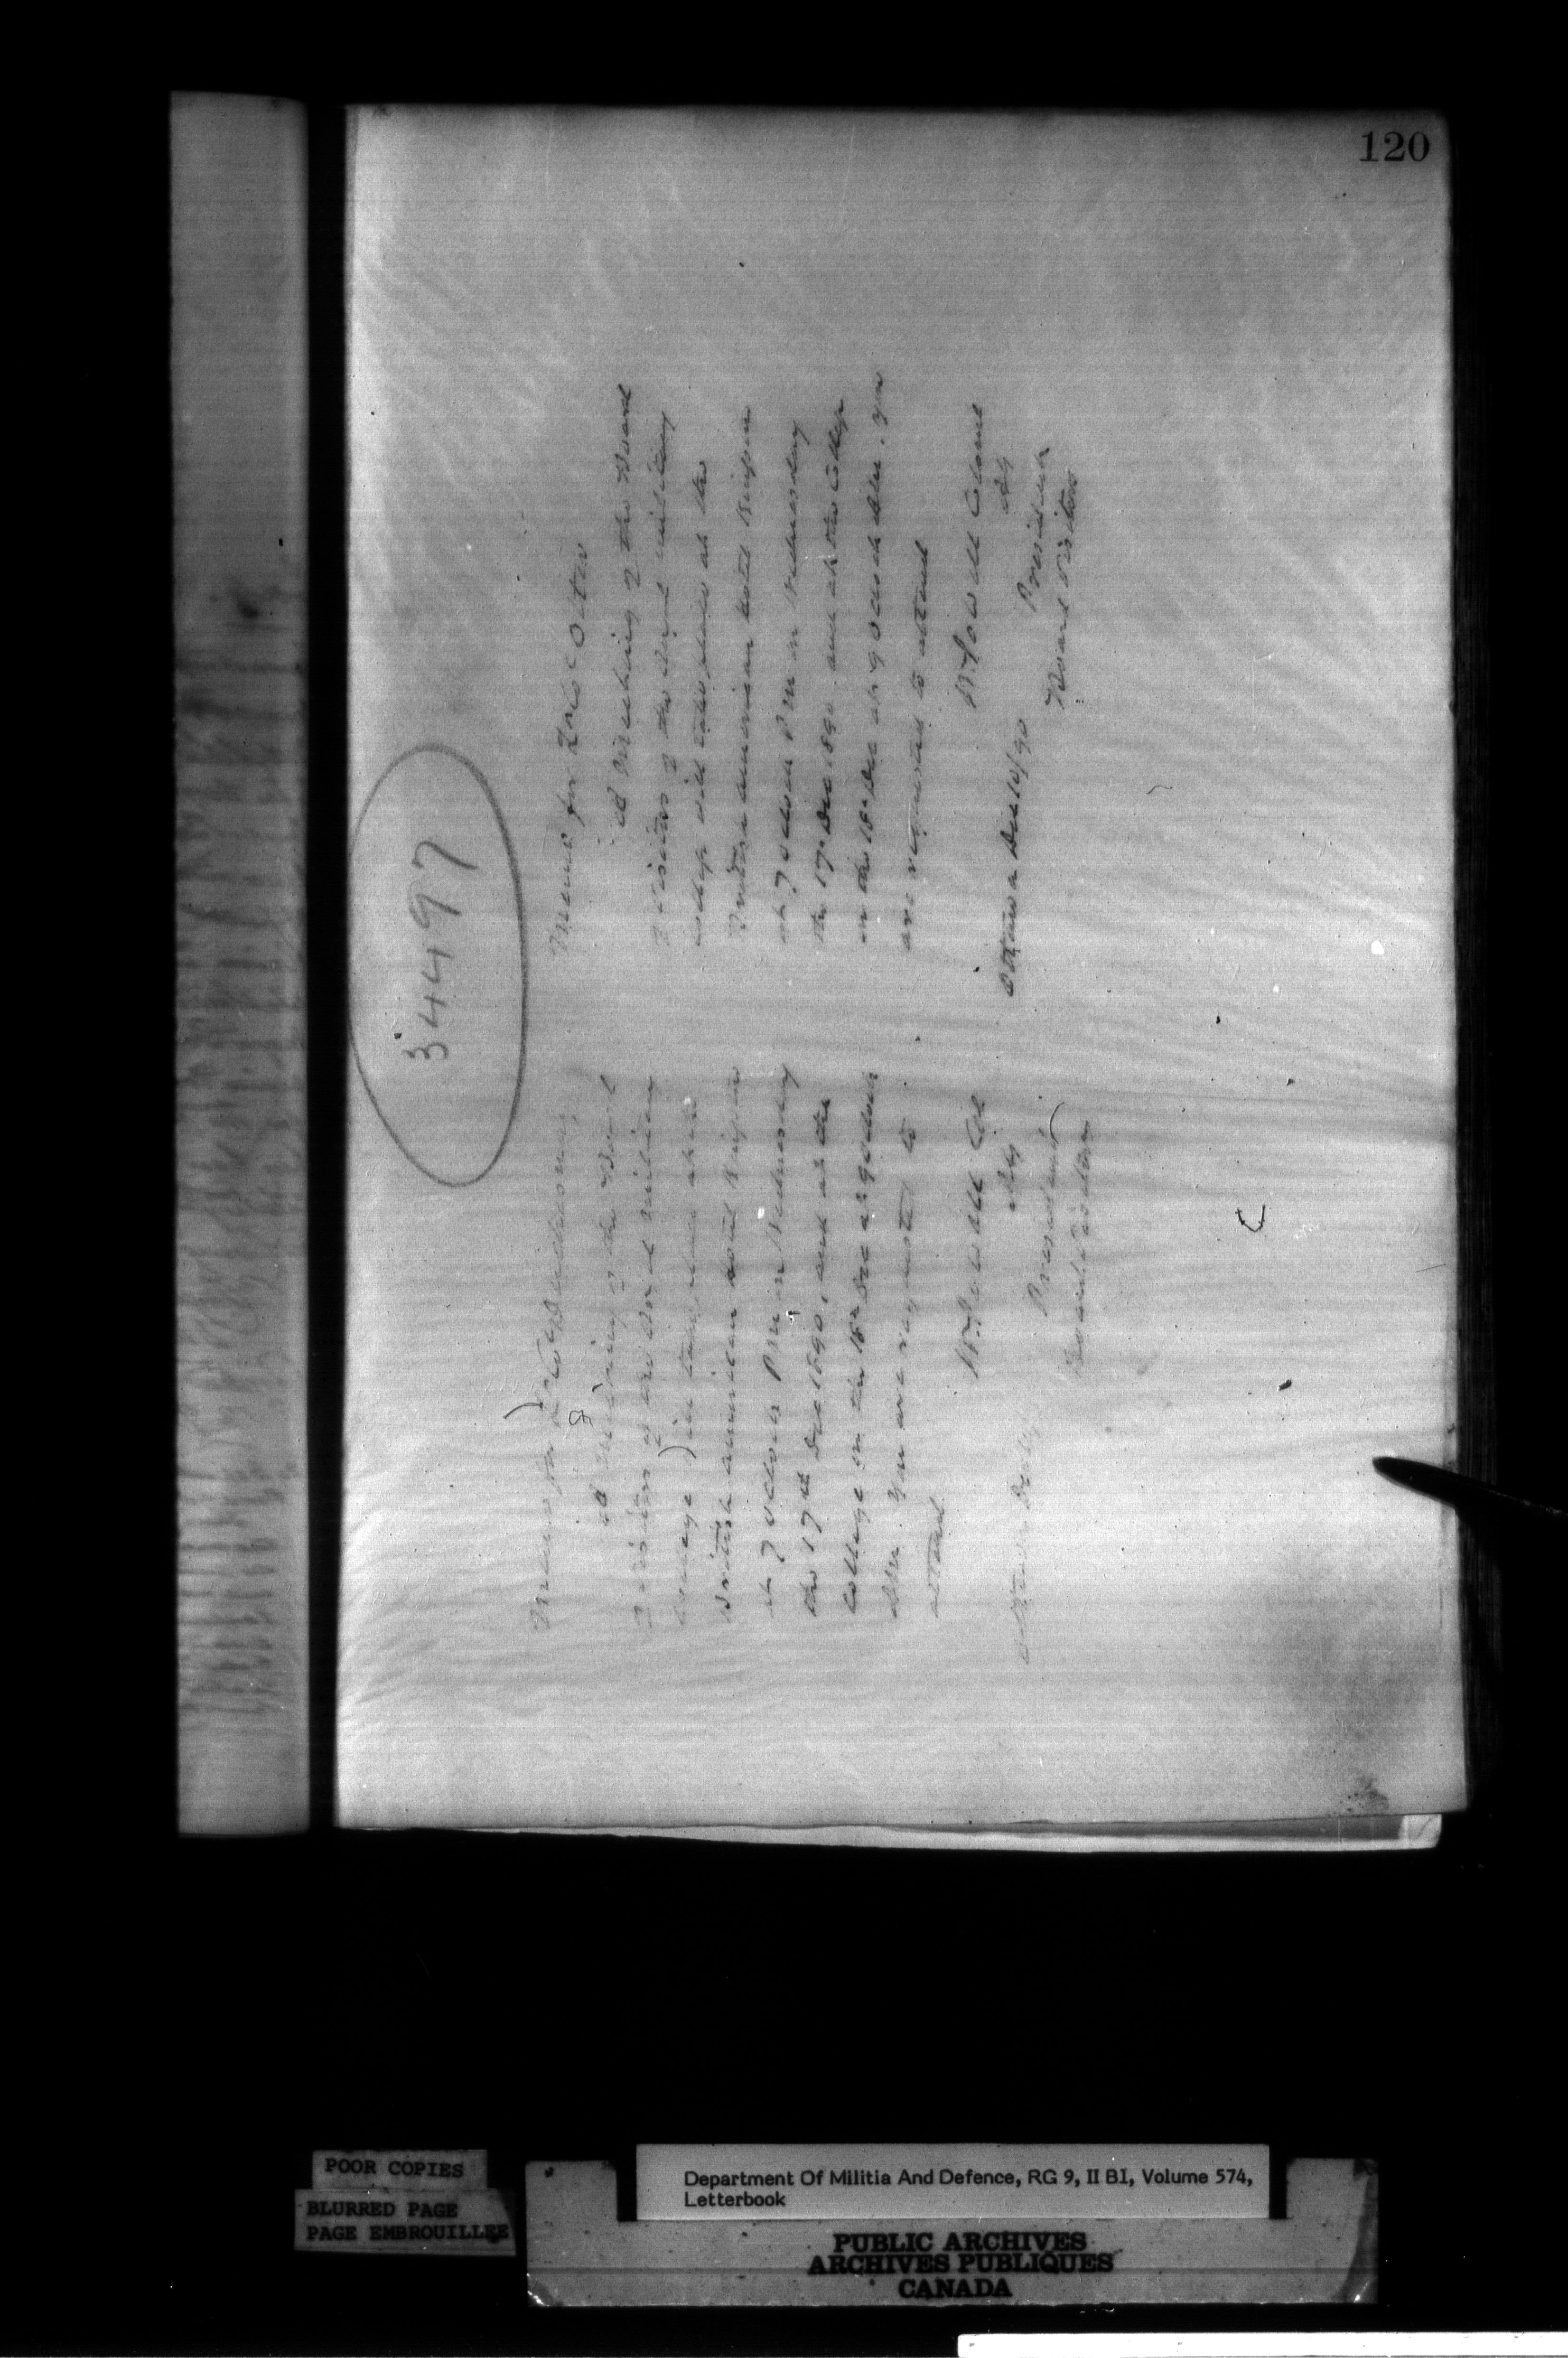 120
34497
Memo for Lt Col
A Meeting of the Board
of Visitors of the Royal Military
College will take place at the
British American Hotel Kingston
at 7 o'clock P M on Wednesday
the 17th Dec 1890, and at the
College on the 18th Dec at 9 o'clock
AM. You are requested to
attend
W Powell Col
Adj
President
Board Visitors
Ottawa Dec 10/90
Memo for Lt Col Otter
A Meeting of the Board
of Visitors of the Royal Military
College will take place at the
British American Hotel Kingston
at 7 o'clock P M on Wednesday
the 17th Dec 1890 and at the College
on the 18th Dec at 9 o'clock AM. You
are requested to attend
W Powell Colonel
Adj
President
Board Visitors
Ottawa Dec 10/90
POOR COPIES
BLURRED PAGE
PAGE EMBROUILLEE
Department Of Militia And Defence, RG 9, II B1, Volume 574,
Letterbook
PUBLIC ARCHIVES
ARCHIVES PUBLIQUES
CANADA